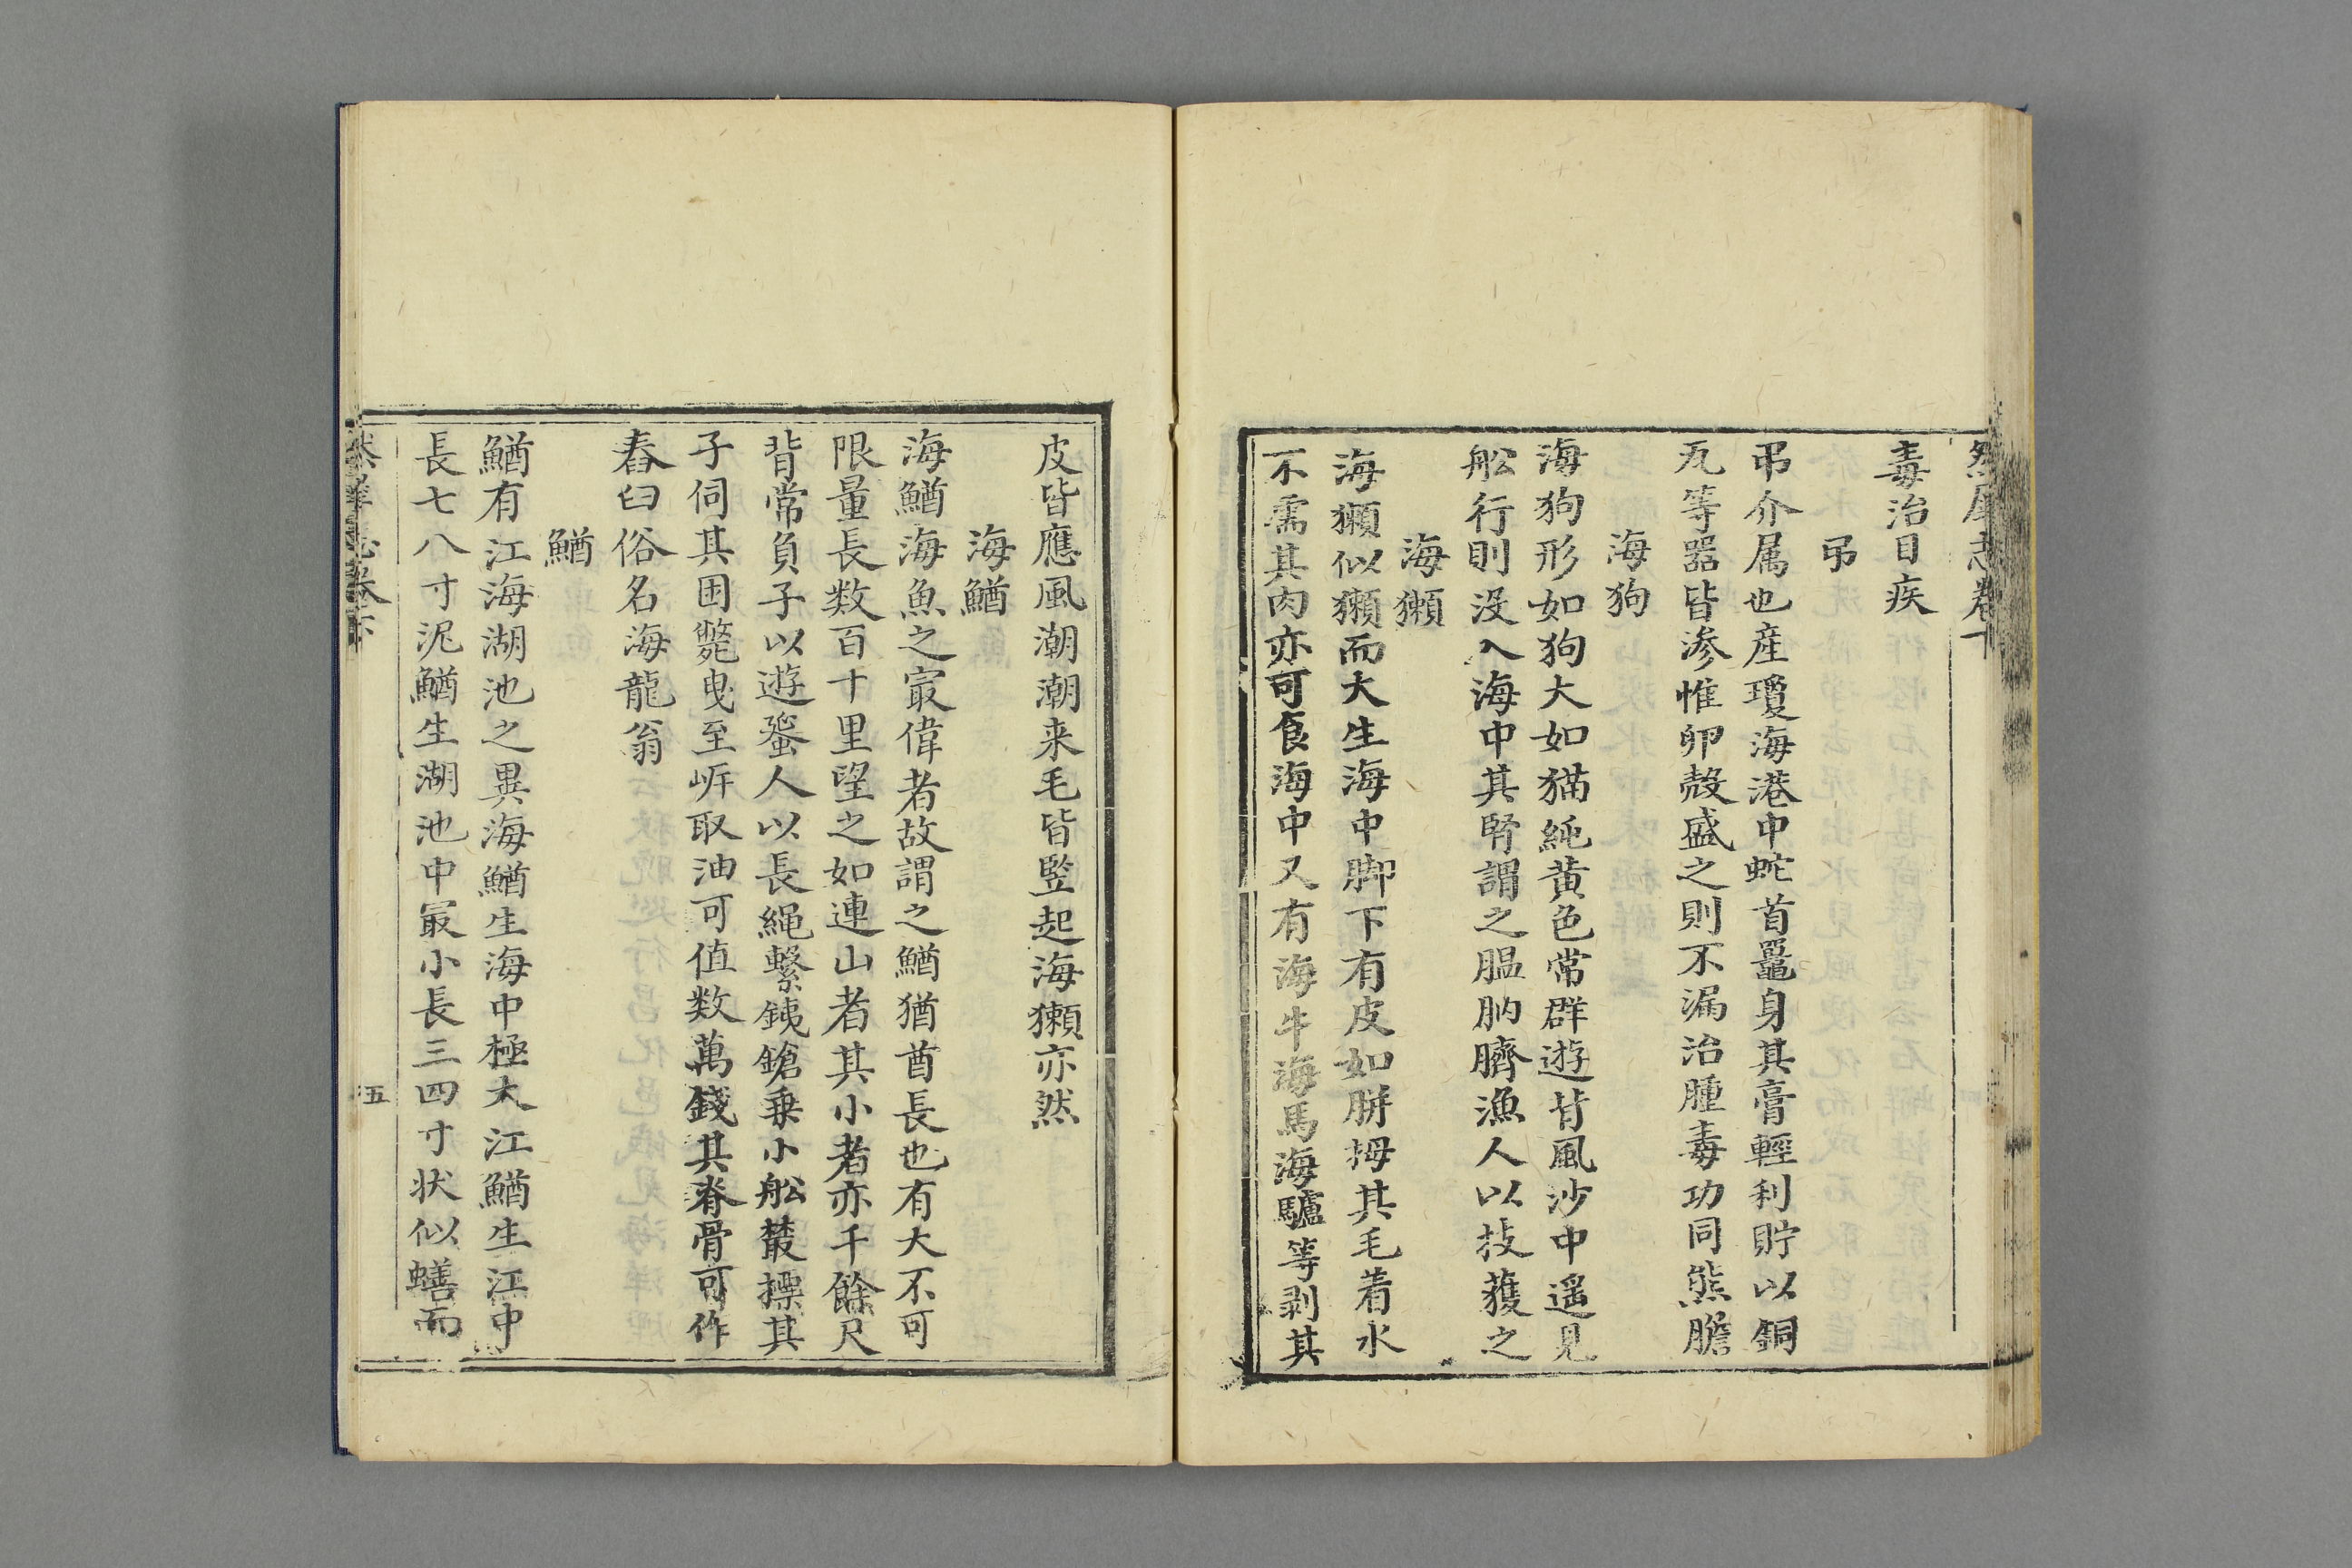 毒治目疾
弔
弔介属也産瓊海港中蛇首鼉身其膏輕利貯以銅
瓦等器皆滲惟卵殼盛之則不漏治腫毒功同熊膽
海狗
海狗形如狗大如猫純黄色常群遊背風沙中遥見
舩行則没入海中其腎謂之膃肭臍漁人以技獲之
海獺
海獺似獺而大生海中脚下有皮如胼拇其毛着水
不濡其肉亦可食海中又有海牛海馬海驢等剥其
皮皆應風潮潮来毛皆竪起海獺亦然
海鰌
海鰌海魚之㝡偉者故謂之鰌猶酋長也有大不可
限量長数百十里望之如連山者其小者亦千餘尺
背常負子以遊蜑人以長繩繫銕鎗乗小舩叢摽其
子伺其困斃曳至㟁取油可值数萬錢其脊骨可作
舂臼俗名海龍翁
鰌
鰌有江海湖池之異海鰌生海中極大江鰌生江中
長七八寸泥鰌生湖池中㝡小長三四寸状似蟮而
五